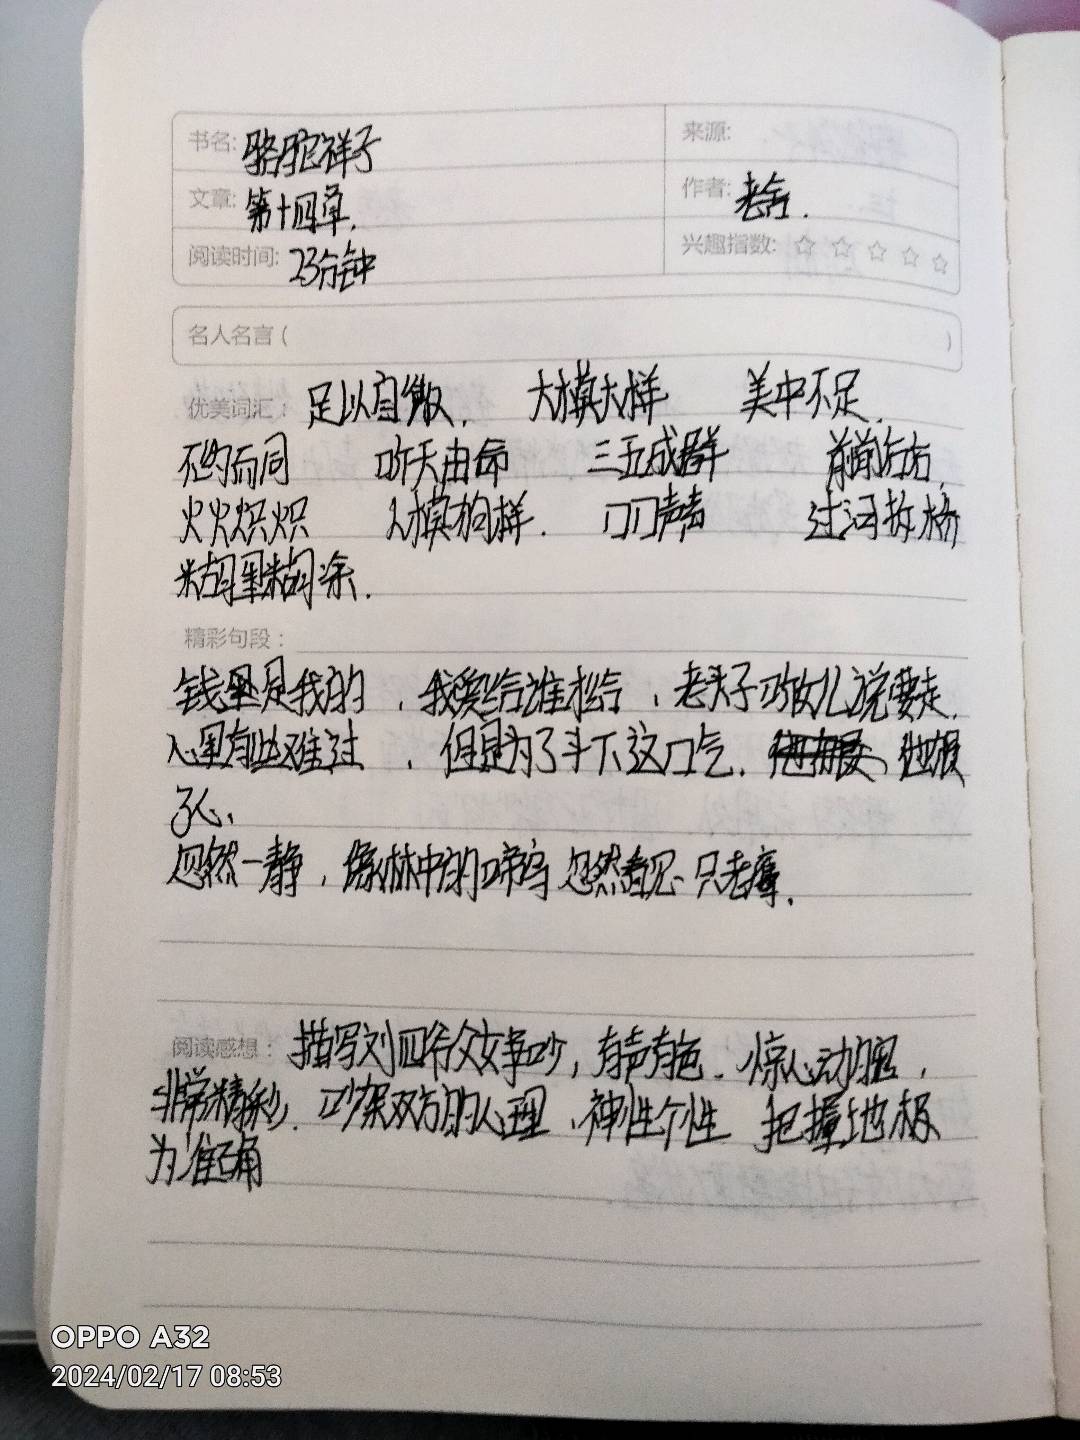 书名: 骆驼祥子 来源:
文章: 第十四章. 作者: 老舍.
阅读时间: 23分钟 兴趣指数: ☆ ☆ ☆ ☆ ☆
名人名言 ( )
优美词汇: 足以自傲. 大模大样 美中不足.
不约而同 听天由命 三五成群
火火炽炽 人模狗样. 口口声声 过河拆桥
糊里糊涂.
精彩句段:
钱是我的, 我爱给谁才给, 老头子听女儿说要走.
心里有些难过, 但是为了斗下这口气. 他狠
了心.
忽然一静, 像林中的啼鸟忽然看见一只老鹰.
阅读感想: 描写刘四爷父女争吵, 有声有色. 惊心动魄,
非常精彩. 吵架双方的心理、神性个性 把握地极
为准确
OPPO A32
2024/02/17 08:53